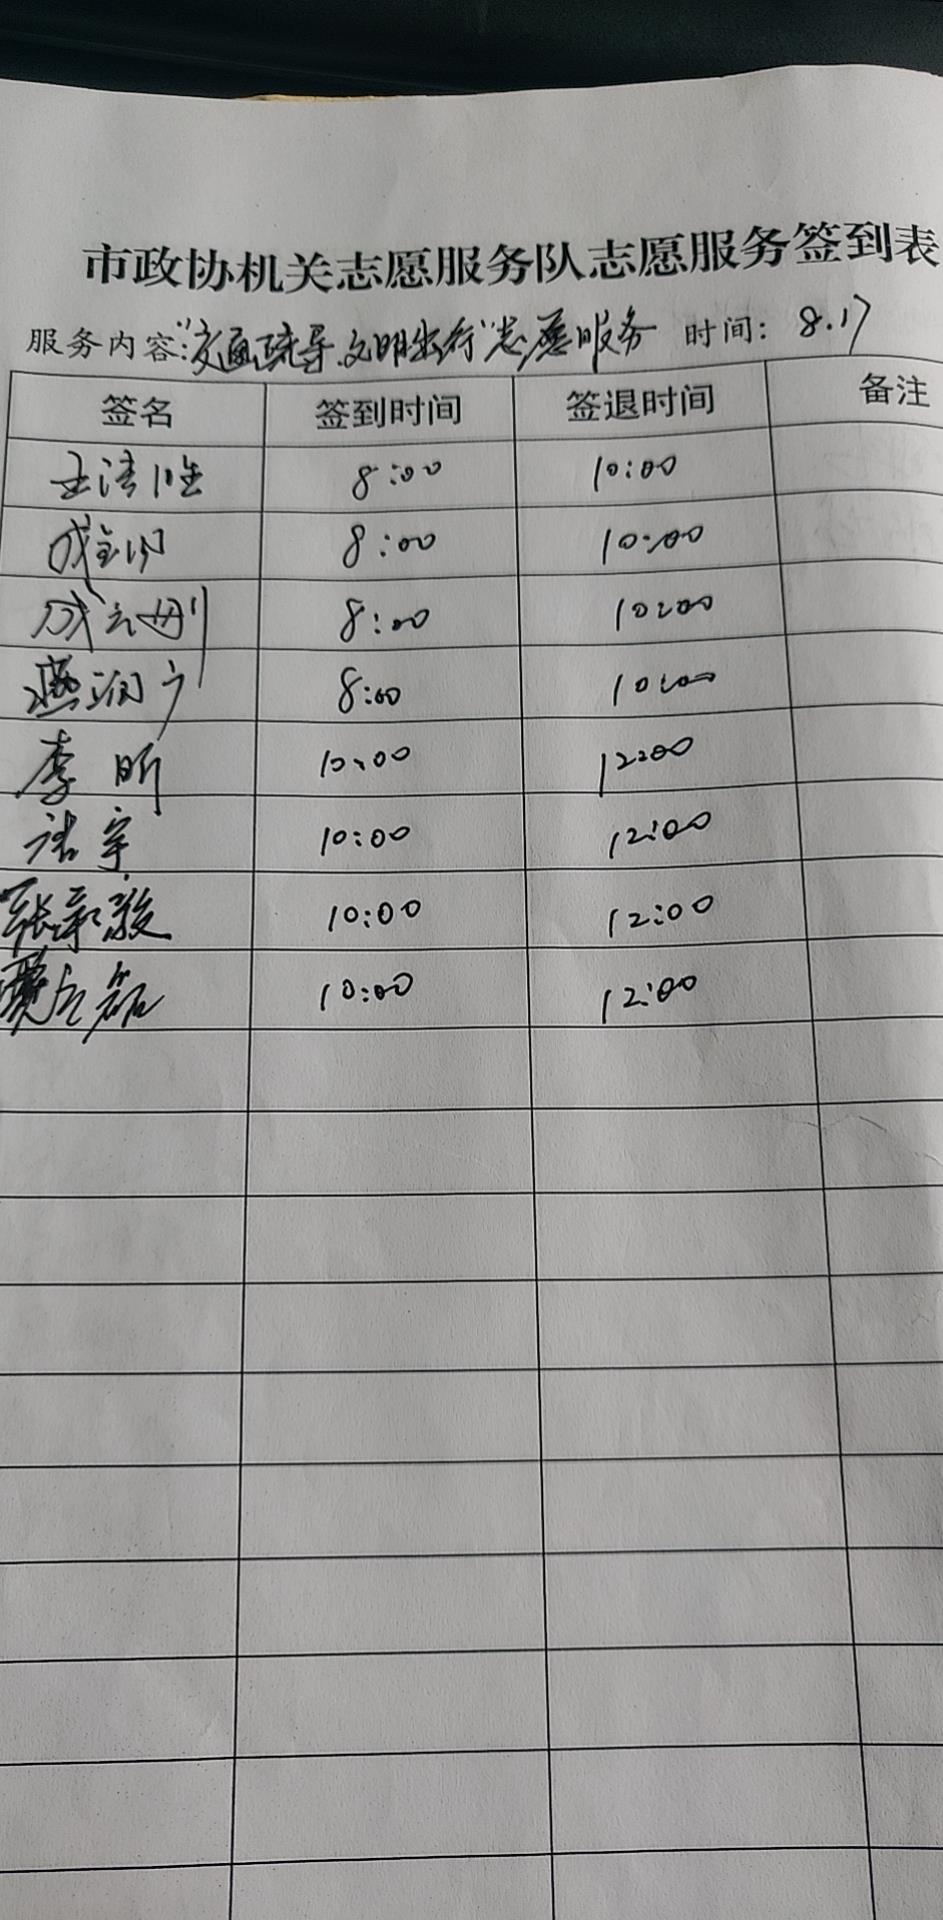 市政协机关志愿服务队志愿服务签到表
服务内容:"交通疏导、文明出行"志愿服务 时间: 8.17
签名 签到时间 签退时间 备注
8:00 10:00
8:00 10:00
8:00 10:00
8:00 10:00
李昕 10:00 12:00
10:00 12:00
10:00 12:00
10:00 12:00